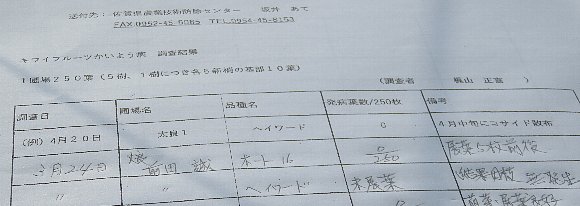 送付先： 佐賀県農業技術防除センター 坂井 あて
FAX 0952-45-5085 TEL 0954-45-8153
キウイフルーツかいよう病 調査結果
1圃場250葉（5樹、1樹につき各5新梢の基部10葉）
（調査者 梶山 正喜 ）
調査日 圃場名 品種名 発病葉数/250枚 備考
（例）4月20日 太良1 ヘイワード 0 4月中旬にコサイド散布
3月24日 前田 誠 ホート16 0/250 展葉5枚前後
〃 〃 ヘイワード 未展葉 結果母枝